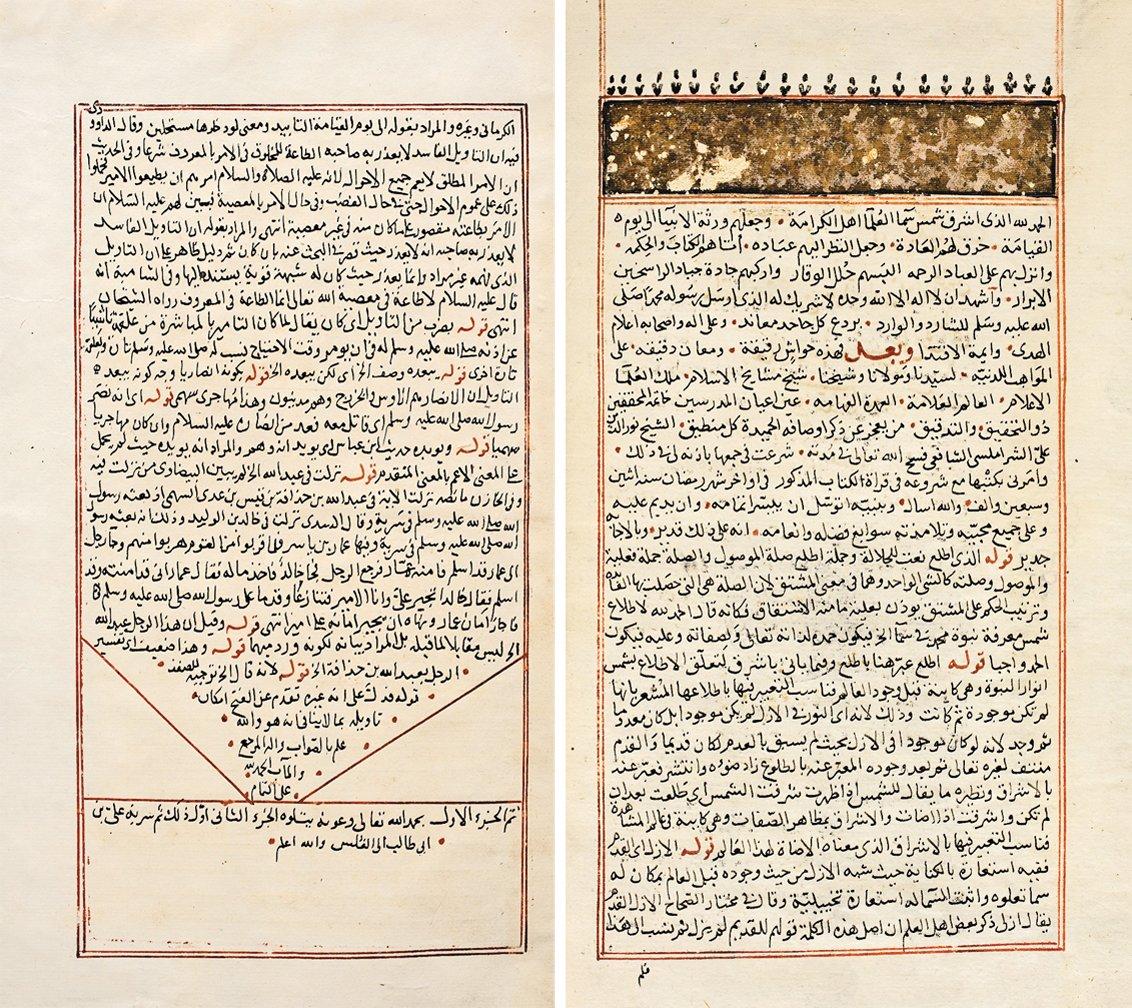 الحمد لله الذى اشرق شمس سما العلما اهل الكرامة • وجعلهم ورثة الانبيا الى يوم
القيامة • خرق لهم العادة • وجعل النظر اليهم عباده • اتاهم الكتاب والحكمه •
وانزلهم على العباد الرحمه البسهم حلل الوقار واركبهم جادة جياد الراسخين
الابرار • واشهد ان لا اله الا الله وحده لا شريك له الذى ارسل رسوله محمد اصلى
الله عليه وسلم للشارد والوارد • يردع كل جاحد معاند • وعلى اله واصحابه اعلام
الهدى • وايمة الاقتدا وبعد فهذه حواش رقيقة • ومعان دقيقه • على
المواهب اللدنيه • لسيدنا ومولانا وشيخنا • شيخ مشايخ الاسلام • ملك العلما
الاعلام • العالم العلامة • العمدة الفهامه • عين اعيان المدرسين خاتمة المحققين
ذو التحقيق والتدقيق • من يعجز عن ذكر اوصافه الحميدة كل منطيق • الشيخ نور الدين
على الشبراملسى الشافعى فسح الله تعالى فى مدته • شرعت فى جمعها باذنه لى فى ذلك •
وامرنى بكتبها مع شروعه فى قراة الكتاب المذكور فى اواخر شهر رمضان سنة اثنين
وسبعين والف • والله اسال • وبنبيه اتوسل ان ييسر اتمامه • وان يديم عليه
وعلى جميع محبيه وتلامذته سوابغ فضله وانعامه • انه على ذلك قدير • وبالاجابة
جدير قوله الذى اطلع نعت للجلالة وجملة اطلع صلة الموصول والصلة جملة فعلية
والموصول وصلته كالشى الواحد وهما فى معنى المشتق لان الصلة هى التى حصلت بها الفائدة
وترتيب الحكم على المشتق يوذن بعلية ما منه الاشتقاق فكانه قال الحمد لله لاطلاع
شمس معرفة نبوة محمد فى سما الخ فيكون حمده لذاته تعالى ولصفاته وعليه فيكون
الحمد واجبا قوله اطلع عبر هنا باطلع وفيما ياتى باشرق لتعلق الاطلاع بشمس
انوار النبوة وهى كاينة قبل وجود العالم فناسب التعبير فيها باطلاعها المشعر بانها
لم تكن موجودة ثم كانت وذلك لانه اى النور فى الازل لم يكن موجودا بل كان معدوما
ثم وجد لانه لو كان موجودا فى الازل بحيث لم يسبق بالعدم لكان قديما والقدم
منتف لغيره تعالى ثم بعد وجوده المعبر عنه بالطلوع زاد ضوءه وانتشر فعبر عنه
بالاشراق ونظيره ما يقال للشمس اذا ظهرت شرقت الشمس اى طلعت بعد ان
لم تكن واشرقت اذا اضات والاشراق بمظاهر الصفات وهى كاينة فى عالم المشاهدة
فناسب التعبير فيها بالاشراق الذى معناه الاضاة لهذا العالم قوله الازل اى القدم
ففيه استعارة بالكناية حيث شبه الازل من حيث وجوده قبل العالم بمكان له
سما تعلوه واثبت السما له استعارة تخييلية وقال فى مختار الصحاح الازل القدم
يقال ازلى ذكر بعض اهل العلم ان اصل هذه الكلمة قولهم للقديم لم يزل ثم نسب الى هذا
فلم
الكرمانى وغيره والمراد بقوله الى يوم القيامة التابيد ومعنى لو دخلوها مستحلين وقال الداوودى
فيه ان التاويل الفاسد لا يعذر به صاحبه الطاعة للمخلوق فى الامر بالمعروف شرعا وفى الحديث
ان الامر المطلق لا يعم جميع الاحوال لانه عليه الصلاة والسلام امرهم ان يطيعوا الامير فحملوا
ذلك على عموم الاحوال حتى فى حال الغضب وفى حال الامر بالمعصية فبين لهم عليه السلام ان
الامر بطاعته مقصور على ما كان منه فى غير معصية انتهى والمراد بقوله ان التاويل الفاسد
لا يعذر به صاحبه انه لا يعذر حيث قصر فى البحث عنه بان كان ثم دليل ظاهر على ان التاويل
الذى فهمه غير مراد وانما يعذر حيث كان له شبهة قوية يستند اليها وفى الشامية انه
قال عليه السلام لا طاعة فى معصية الله تعالى انما الطاعة فى المعروف رواه الشيخان
انتهى قوله بضرب من التاويل اى كان يقال لما كان التامير بالمباشرة من علقمة ناشيا
عن اذنه صلى الله عليه وسلم له فى ان يومر وقت الاحتياج نسب له صلى الله عليه وسلم تارة ولعلقمة
تارة اخرى قوله يبعده وصف الخ اى لكن يبعده الخ قوله بكونه انصاريا وجه كونه يبعد
التاويل ان الانصار هم الاوس والخزرج وهم مدنيون وهذا مهاجرى سهمى قوله اى انه نصر
رسول الله صلى الله عليه وسلم اى قاتل معه فعد من انصاره عليه السلام وان كان مهاجريا
سهميا قوله ويويده حديث ابن عباس اى يويد انه وهم والمراد انه يويده حيث لم يحمل
على المعنى الاعم بالمعنى المتقدم قوله نزلت فى عبد الله الخ لم يبين البيضاوى من نزلت فيه
وفى الخازن ما نصه نزلت الاية فى عبد الله بن حذافة بن قيس بن عدى السهمى اذ بعثه رسول
الله صلى الله عليه وسلم فى سرية وقال السدى نزلت فى خالد بن الوليد وذلك انه بعثه رسول
الله صلى الله عليه وسلم فى سرية وفيها عمار بن ياسر فلما قربوا من القوم هربوا منهم وجا رجل
الى عمار وقد اسلم فامنه عمار فرجع الرجل فجا خالد فاخذ ماله فقال عمار انى قد امنته وقد
اسلم فقال خالد اتجير على وانا الامير فتنازعا وقدما على رسول الله صلى الله عليه وسلم فا
جاز امان عمار ونهاه ان يجير امانه على امير انتهى قوله وقيل ان هذا الرجل عبد الله
الخ ليس مقابلا لما قبله بل المراد بيانه لكونه ورد مبهما قوله وهذا ضعيف اى تفسير
• الرجل بعبد الله بن حذافة الخ قوله لانه قال الخ توجيه للضعف •
• قوله فدل على انه غيره تقدم عن الفتح امكان •
• تاويله بما لا ينافى انه هو والله •
• علم بالصواب واليه المرجع •
• والمآب الحمد لله •
• على التمام •
تم الجزء الاول بحمد الله تعالى وعونه يتلوه الجزء الثانى اول ذلك ثم سرية على بن
• ابى طالب الى الفلس والله اعلم •